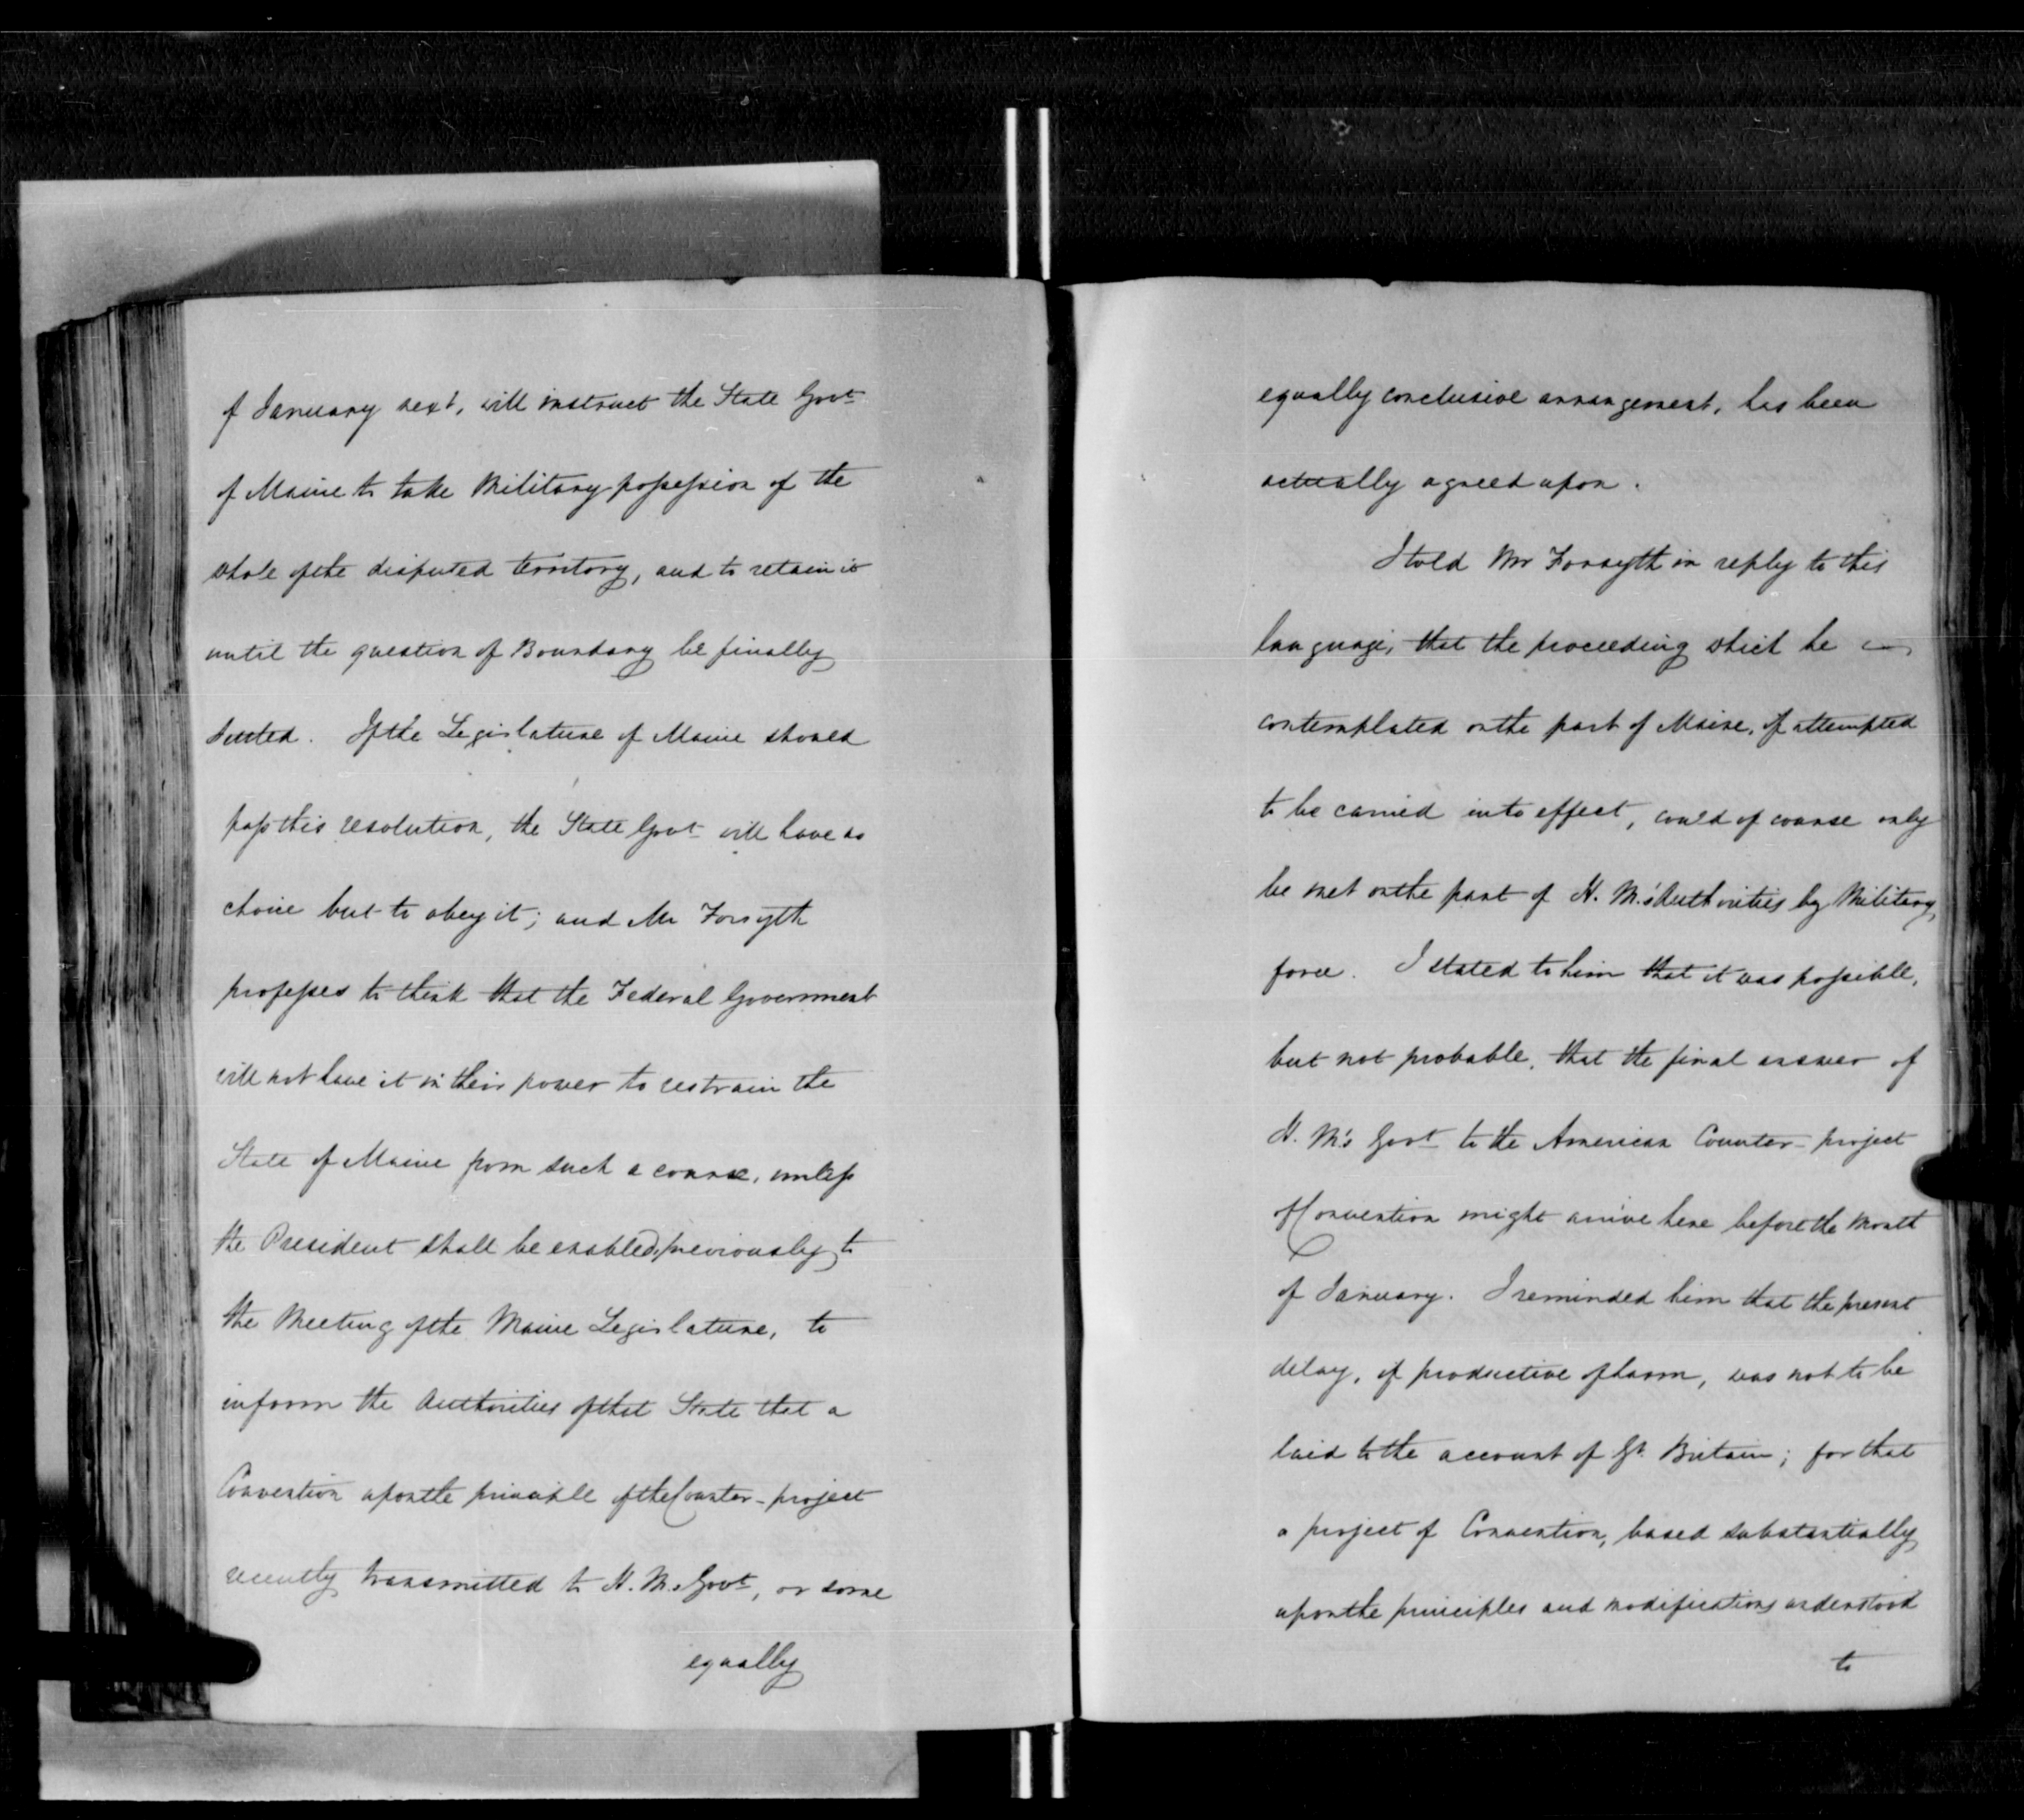 of January next, will instruct the State Govt
of Maine to take Military possession of the
whole of the disputed territory, and to retain it
until the question of Boundary be finally
settled. If the Legislature of Maine should
pass this resolution, the State Govt will have no
choice but to obey it; and Mr Forsyth
professes to think that the Federal Government
will not have it in their power to restrain the
State of Maine from such a course, unless
the President shall be enabled, previously to
the Meeting of the Maine Legislature, to
inform the Authorities of that State that a
Convention upon the principle of the Counter-project
recently transmitted to H. M.s Govt, or some
equally
equally conclusive arrangement, has been
actually agreed upon.
I told Mr Forsyth in reply to this
language, that the proceeding which he
contemplated on the part of Maine, if attempted
to be carried into effect, could of course only
be met on the part of H. M.'s Authorities by Military
force. I stated to him that it was possible,
but not probable, that the final answer of
H. M's Govt to the American Counter-project
of Convention might arrive here before the Month
of January. I reminded him that the present
delay, if productive of harm, was not to be
laid to the account of Gt Britain; for that
a project of Convention, based substantially
upon the principles and modifications understood
to